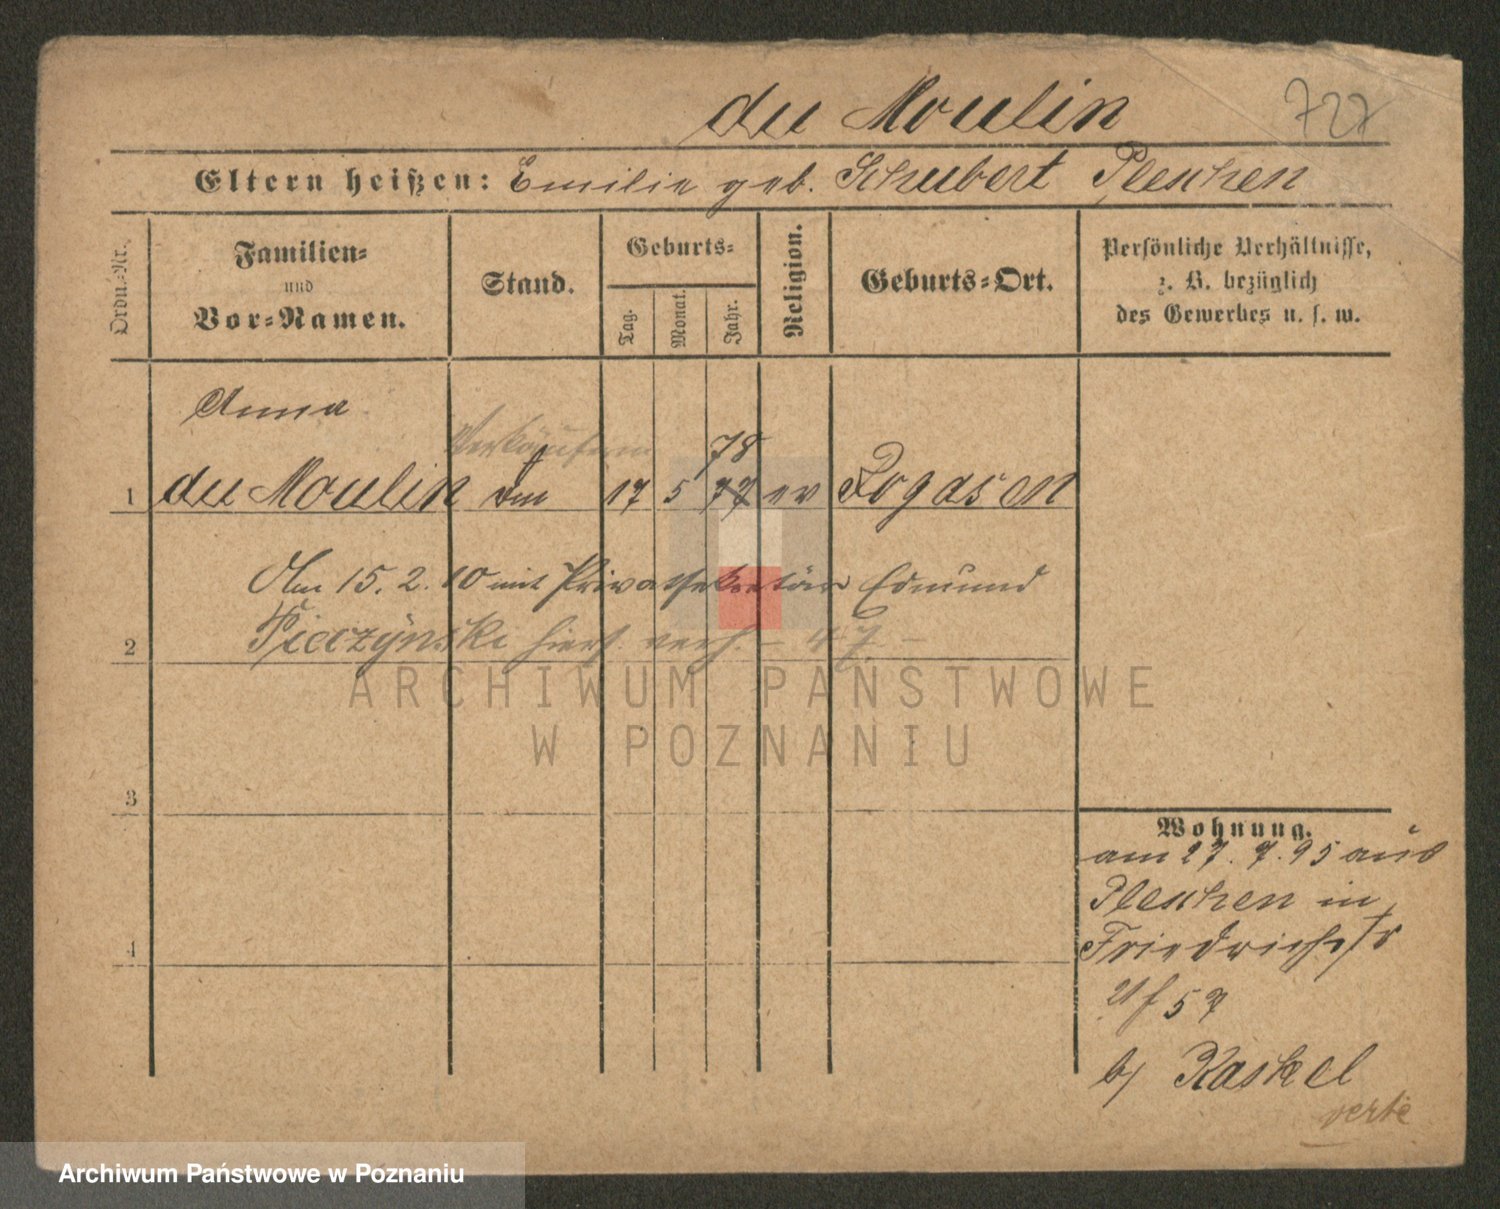 du Moulin 727
Eltern heißen: Emilie geb. Schubert Pleschen
Ordn.-Nr.
Familien-
und
Vor-Namen.
Stand.
Geburts-
Tag.
Monat.
Jahr.
Religion.
Geburts-Ort.
Persönliche Verhältnisse,
z. B. bezüglich
des Gewerbes u. s. w.
Anna
Verkäuferin
78
1 du Moulin 17 5 77 ev Rogasen
Am 15. 2. 10 mit Privatsekretär Edmund
2 Pieczynski hiers. verh. – 47 –
3
4
Wohnung.
am 27. 7. 95 aus
Pleschen in
Friedrichstr
57
b/ Kaskel
verte
ARCHIWUM PAŃSTWOWE
W POZNANIU
Archiwum Państwowe w Poznaniu